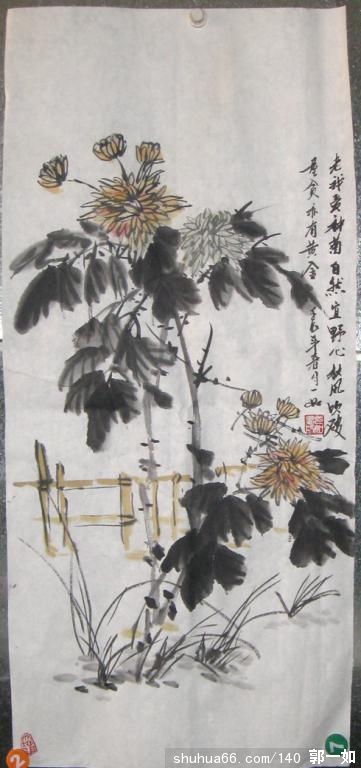 老我爱种菊自然宜野心秋风吹破
屋贫亦有黄金
年春月一如
2
1
shuhua66.com/140 郭一如